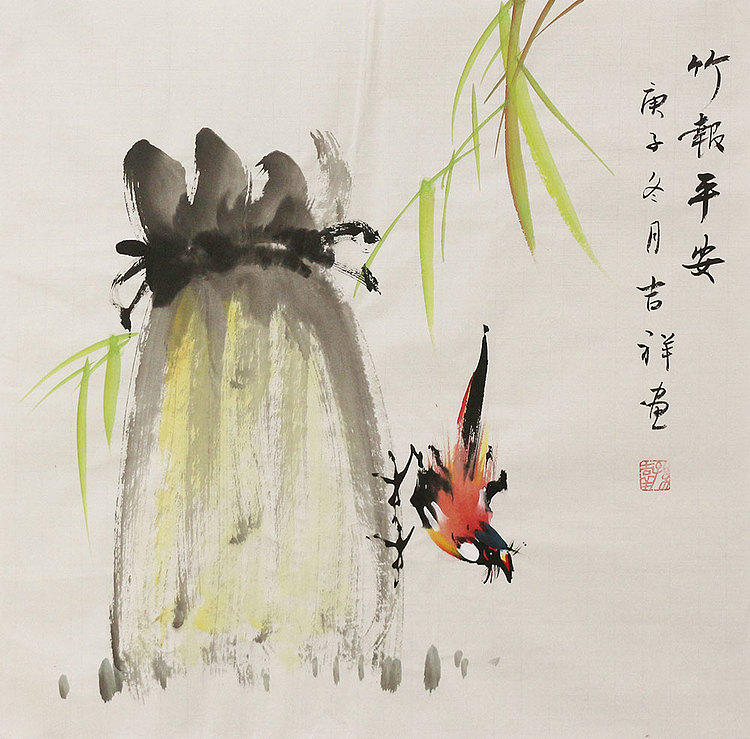 竹報平安
庚子冬月吉祥畫